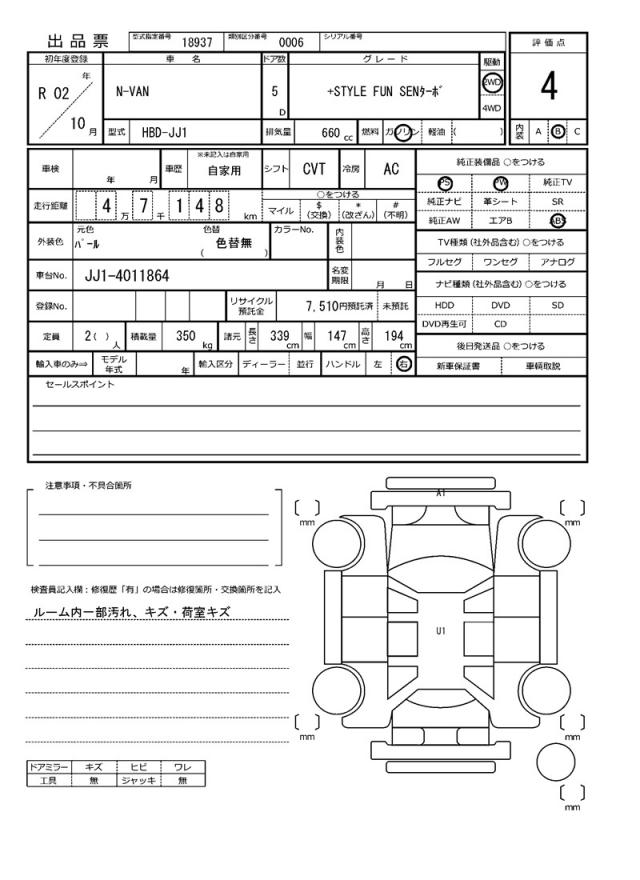 出品票 型式指定番号 18937 類別区分番号 0006 シリアル番号
評価点
4
内装 A B C
初年度登録 車名 ドア数 グレード 駆動
R 02 年 N-VAN 5 D +STYLE FUN SENﾀｰﾎﾞ 2WD
4WD
10 月 型式 HBD-JJ1 排気量 660 cc 燃料 ガソリン 軽油 ( )
車検 年 月 車歴 ※未記入は自家用 自家用 シフト CVT 冷房 AC
走行距離 4 万 7 千 1 4 8 km ○をつける
マイル $(交換) *(改ざん) #(不明)
外装色 元色 ﾊﾟｰﾙ 色替 色替無 ( ) カラーNo. 内装色
車台No. JJ1-4011864 名変期限 月 日
登録No. リサイクル預託金 7,510円預託済 未預託
定員 2( ) 人 積載量 350 kg 諸元 長さ 339 cm 幅 147 cm 高さ 194 cm
輸入車のみ⇒ モデル年式 年 輸入区分 ディーラー 並行 ハンドル 左 右
純正装備品 ○をつける
PS PW 純正TV
純正ナビ 革シート SR
純正AW エアB ABS
TV種類(社外品含む)○をつける
フルセグ ワンセグ アナログ
ナビ種類(社外品含む)○をつける
HDD DVD SD
DVD再生可 CD
後日発送品 ○をつける
新車保証書 車輌取説
セールスポイント
注意事項・不具合箇所
検査員記入欄：修復歴「有」の場合は修復箇所・交換箇所を記入
ルーム内一部汚れ、キズ・荷室キズ
ドアミラー キズ ヒビ ワレ
工具 無 ジャッキ 無
A1
U1
mm
mm
mm
mm
mm